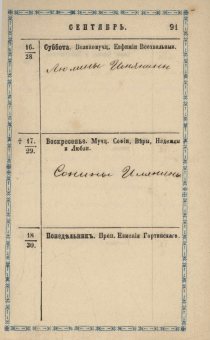 СЕНТЯБРЬ. 91
16. Суббота. Великомучц. Евфиміи Всехвальныя.
28
Именины
† 17. Воскресенье. Мучц. Софіи, Вѣры, Надежды
29. и Любви.
Сонины Именины
18 Понедѣльникъ. Преп. Евменія Гортинскаго.
30.